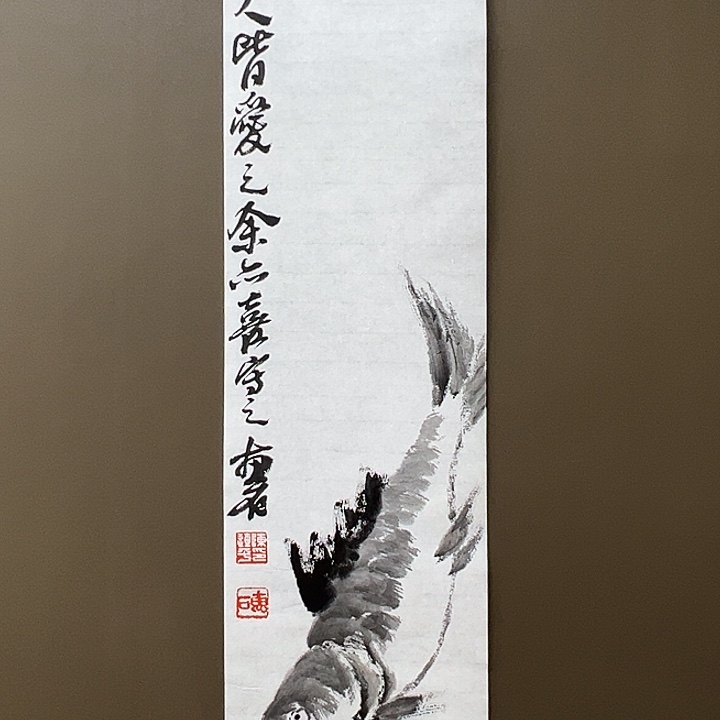 人皆愛之余亦喜寫之